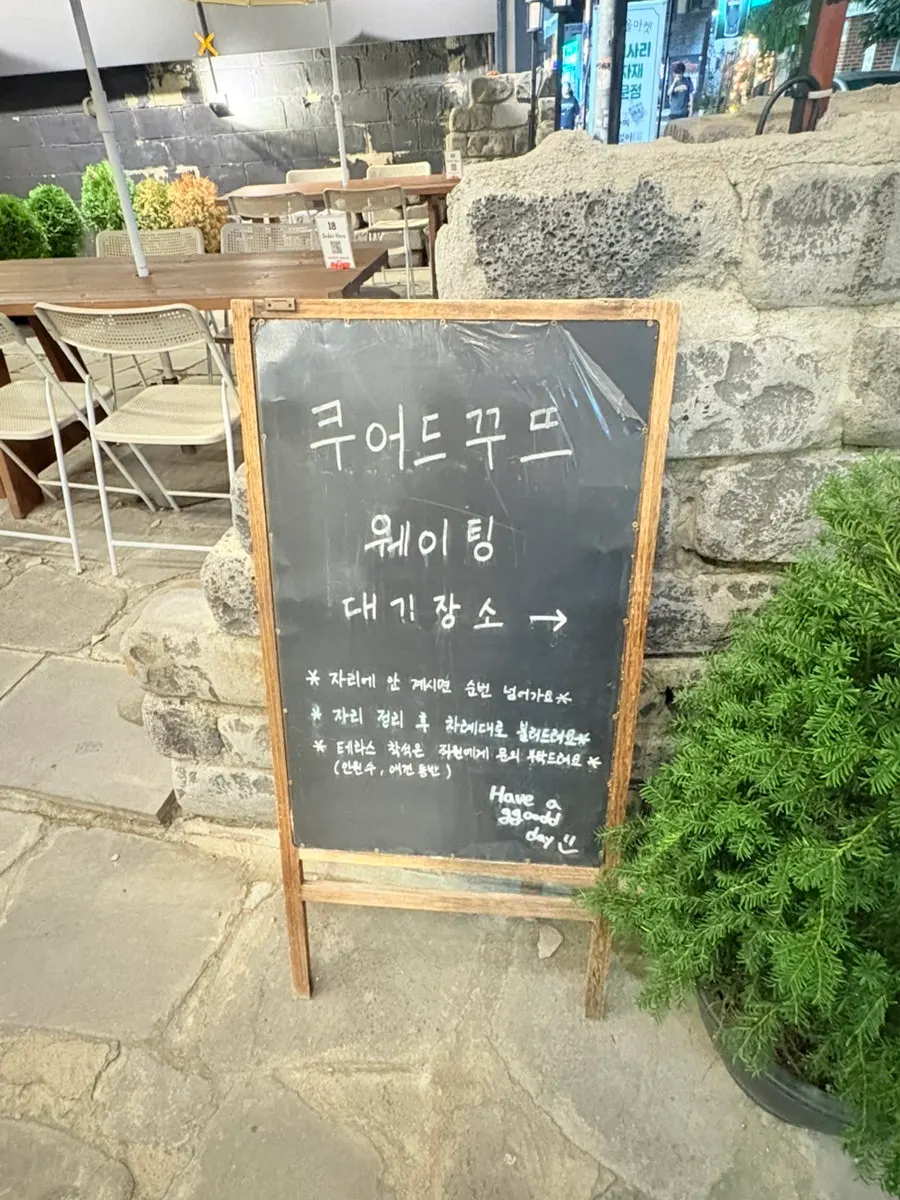 쿠어드꾸뜨
웨이팅
대기장소 →
* 자리에 안 계시면 순번 넘어가요 *
* 자리 정리 후 차례대로 불러드려요 *
* 테라스 착석은 직원에게 문의 부탁드려요 *
(인원수, 애견동반)
Have a
ggoodd
day
18
Order Here
마켓
사리
자재
문점